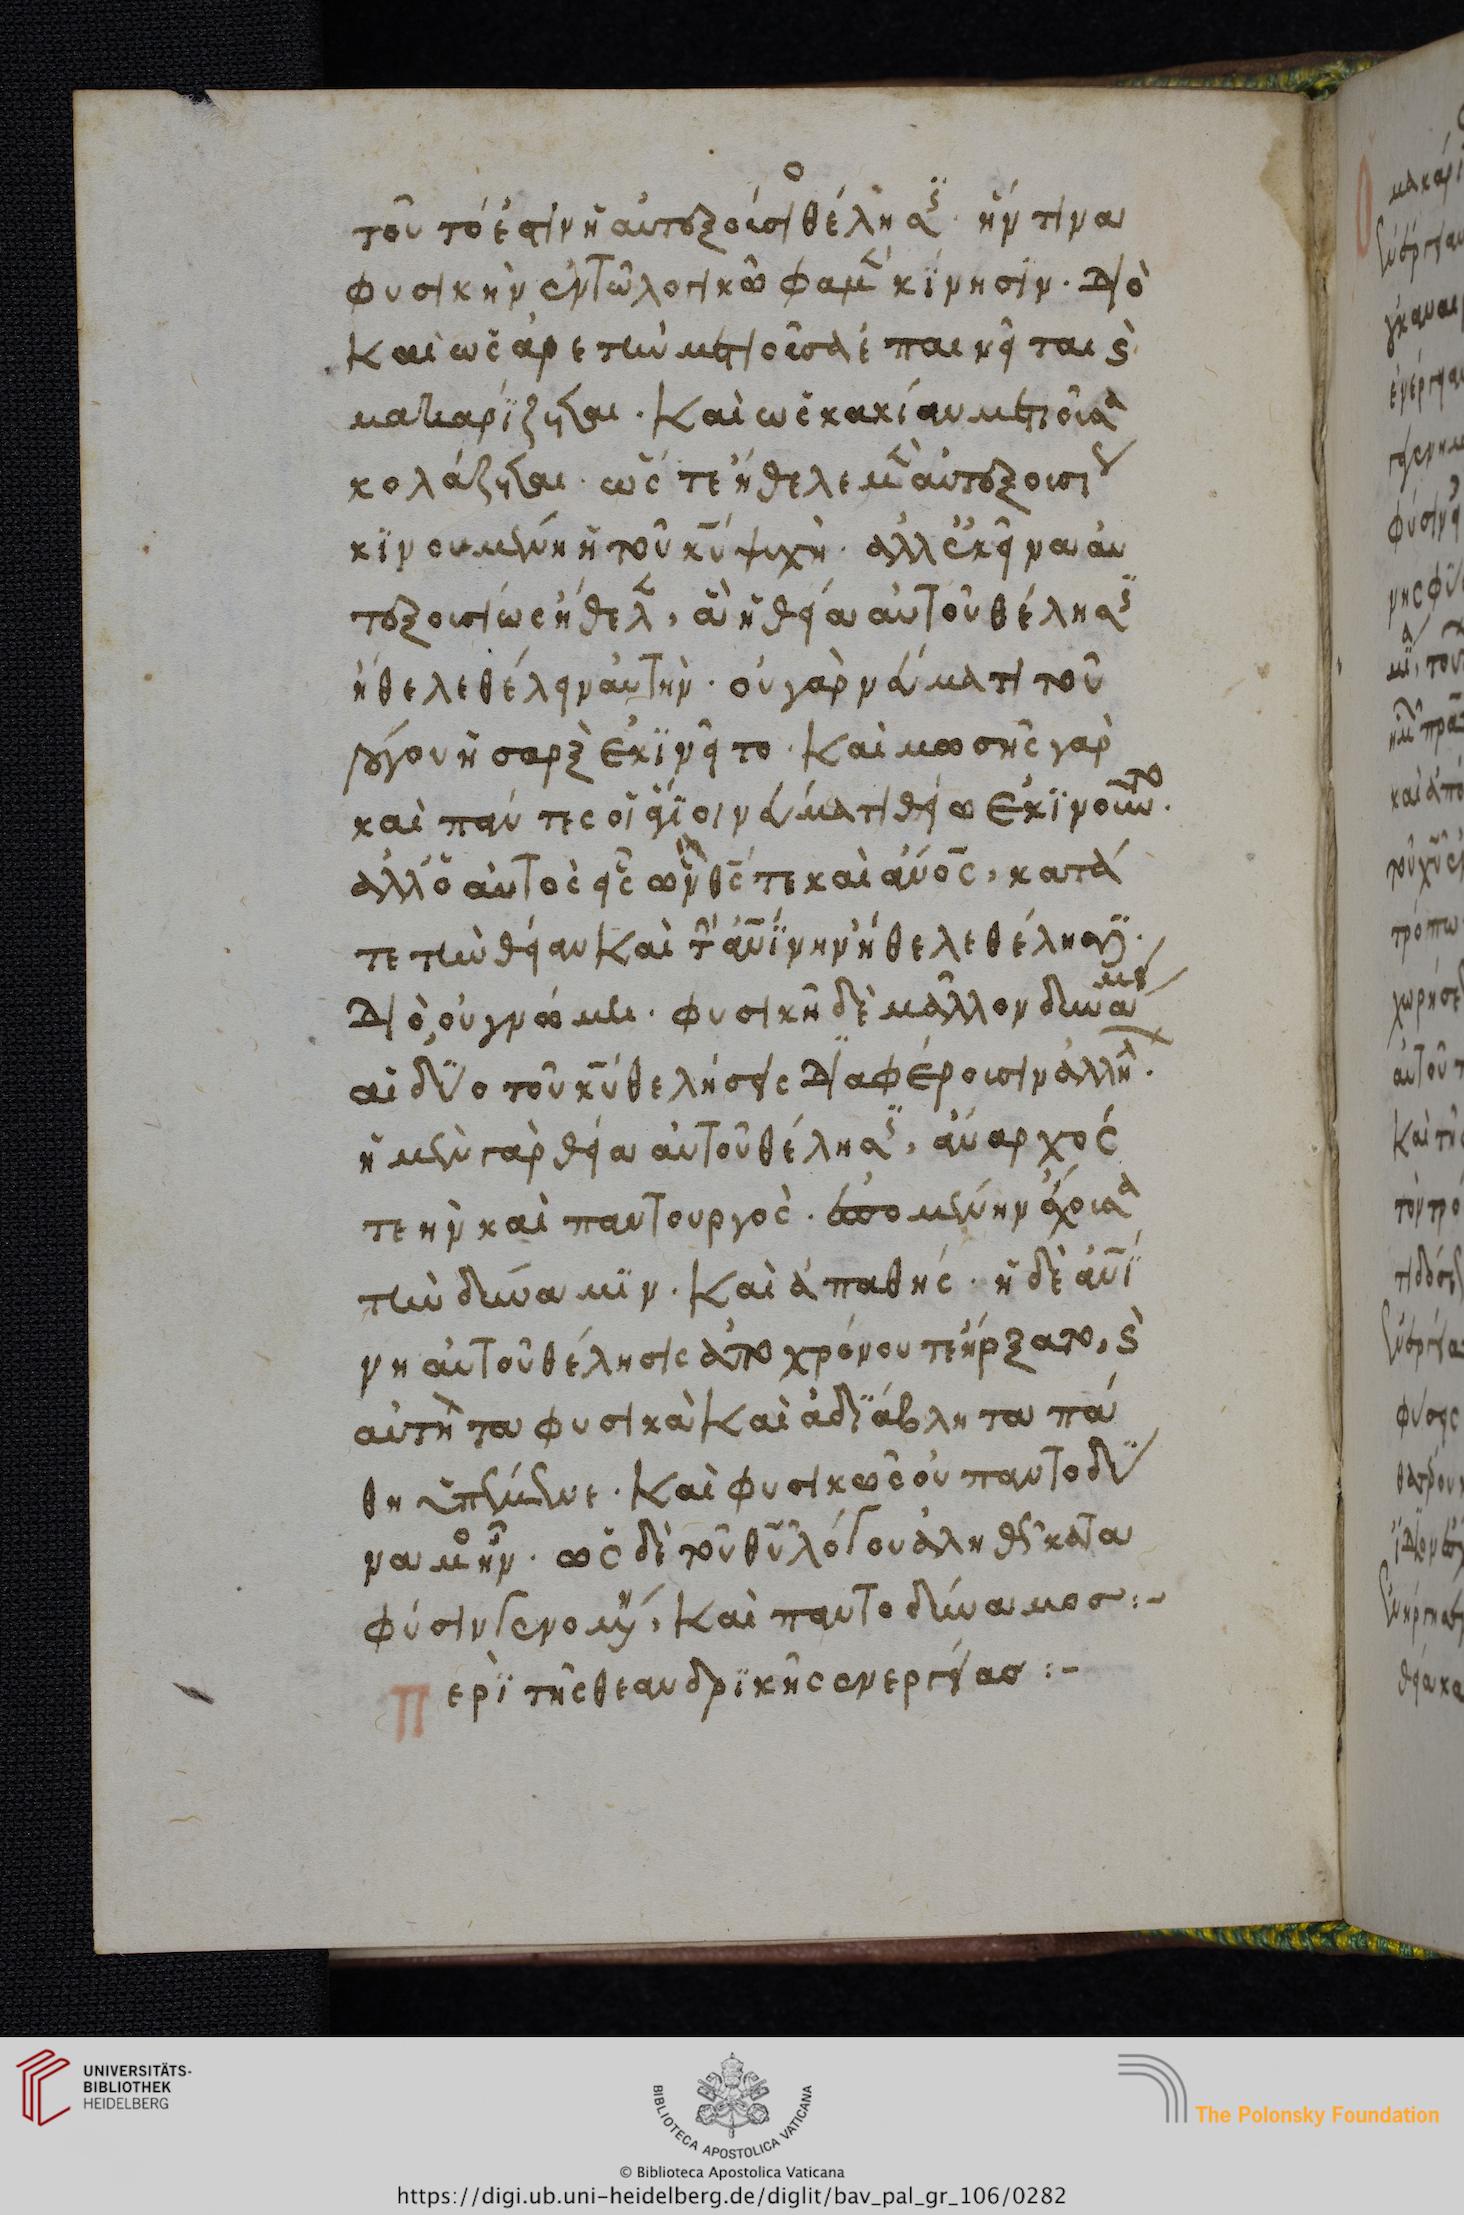 ο
τοῦτό ἐστιν ἡ αὐτεξούσι θέλησ. ἥν τινα
φυσικὴν ἐν τῶ λογικῶ φαμ κίνησιν. διὸ
καὶ ὡς ἀρετὴν μετιοῦσα ἐπαινεῖται καὶ
μακαρίζεται. καὶ ὡς κακίαν μετιοῦσα
κολάζεται. ὥστε ἤθελε μὲν αὐτεξουσι
κινουμένη ἡ τοῦ κυ ψυχὴ. ἀλλ' ἐκεῖνα αὐ
τεξουσίως ἤθελ, ἃ ἡ θεία αὐτοῦ θέλησ
ἤθελε θέλειν αὐτὴν. οὐ γὰρ νεύματι τοῦ
λόγου ἡ σαρξ ἐκινεῖτο. καὶ μωσῆς γὰρ
καὶ πάντες οἱ ἅγιοι νεύματι θείω ἐκινοῦντο.
ἀλλ' ὁ αὐτὸς εἷς ὢν θς τε καὶ ἄνος, κατά
τε τὴν θείαν καὶ τ ἀνίνην ἤθελε θέλησιν.
διὸ οὐ γνώμη. φυσικῆ δὲ μᾶλλον δυνάμει
αἱ δύο τοῦ κυ θελήσεις διαφέρουσιν ἀλλήλ.
ἡ μὲν γὰρ θεία αὐτοῦ θέλησ, ἄναρχός
τε ἦν καὶ παντουργὸς. ἑπομένην ἔχουσα
τὴν δύναμιν. καὶ ἀπαθής. ἡ δὲ ἀνί
νη αὐτοῦ θέλησις ἀπὸ χρόνου τε ἤρξατο, καὶ
αὐτὴ τὰ φυσικὰ καὶ ἀδιάβλητα πά
θη ὑπέμεινε. καὶ φυσικῶς οὐ παντοδύ
ναμο ἦν. ὡς δὲ τοῦ θυ λόγου ἀληθῶς κατα
φύσιν γενομένη, καὶ παντοδύναμος:~
Περὶ τῆς θεανδρικῆς ἐνεργείας :~
UNIVERSITÄTS-
BIBLIOTHEK
HEIDELBERG
BIBLIOTECA APOSTOLICA VATICANA
© Biblioteca Apostolica Vaticana
The Polonsky Foundation
https://digi.ub.uni-heidelberg.de/diglit/bav_pal_gr_106/0282